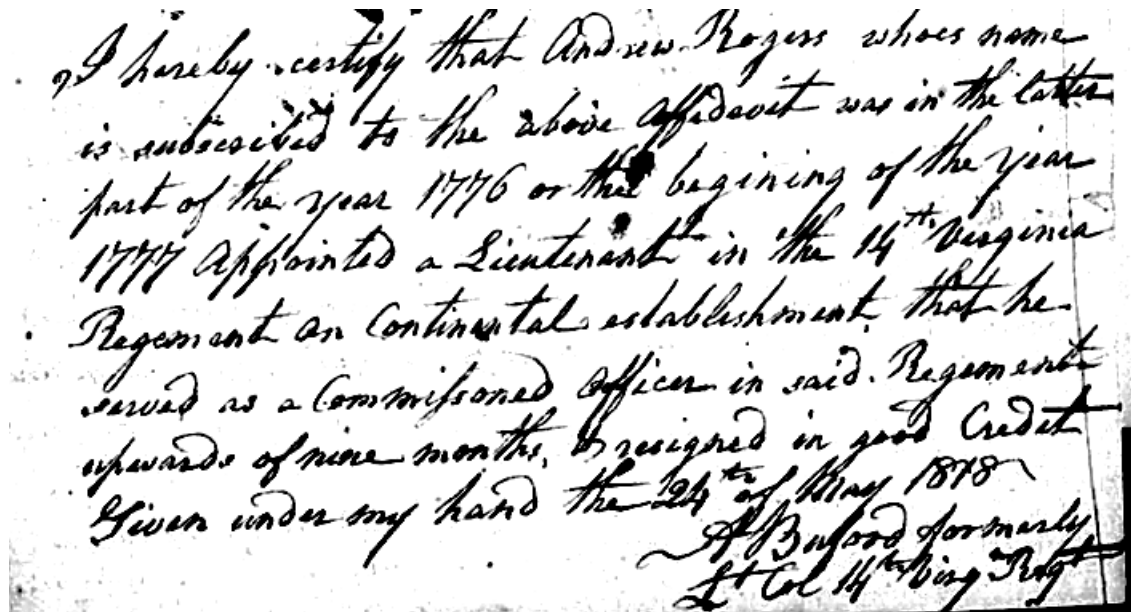 I hereby certify that Andrew Rogers whoes name
is subscribed to the above Affedavit was in the latter
part of the year 1776 or the begining of the year
1777 Appointed a Lieutenant in the 14th Virginia
Regement on Continental establishment that he
served as a Commissoned Officer in said Regement
upwards of nine months, & resigned in good Credit
Given under my hand the 24th of May 1818
A Buford formerly
Lt Col 14th Virg Regt